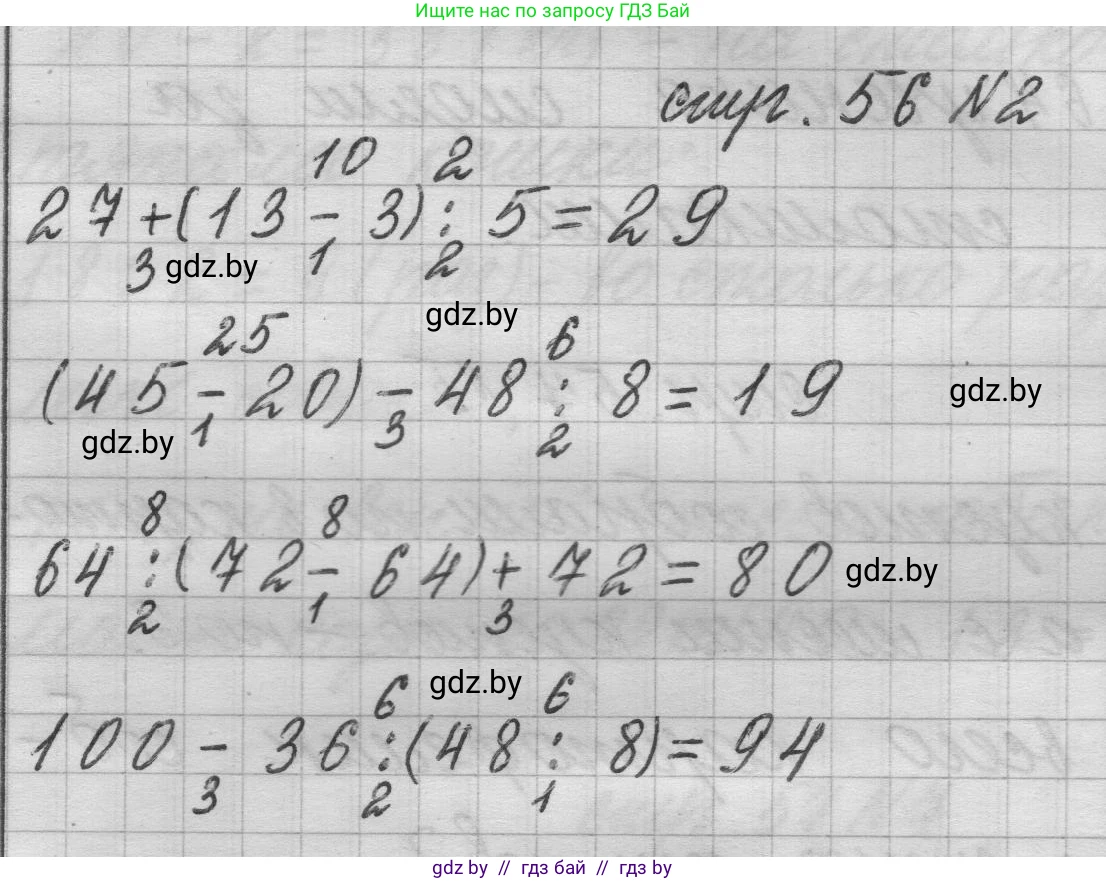 Ищите нас по запросу ГДЗ Бай
стр. 56 №2
10 2
27 + (13 - 3) : 5 = 29
3 gdz.by 1 2
gdz.by
25 6
(45 - 20) - 48 : 8 = 19 gdz.by
gdz.by 1 3 2
8 8
64 : (72 - 64) + 72 = 80 gdz.by
2 1 3
6 gdz.by 6
100 - 36 : (48 : 8) = 94
3 2 1
gdz.by // гдз бай // гдз by